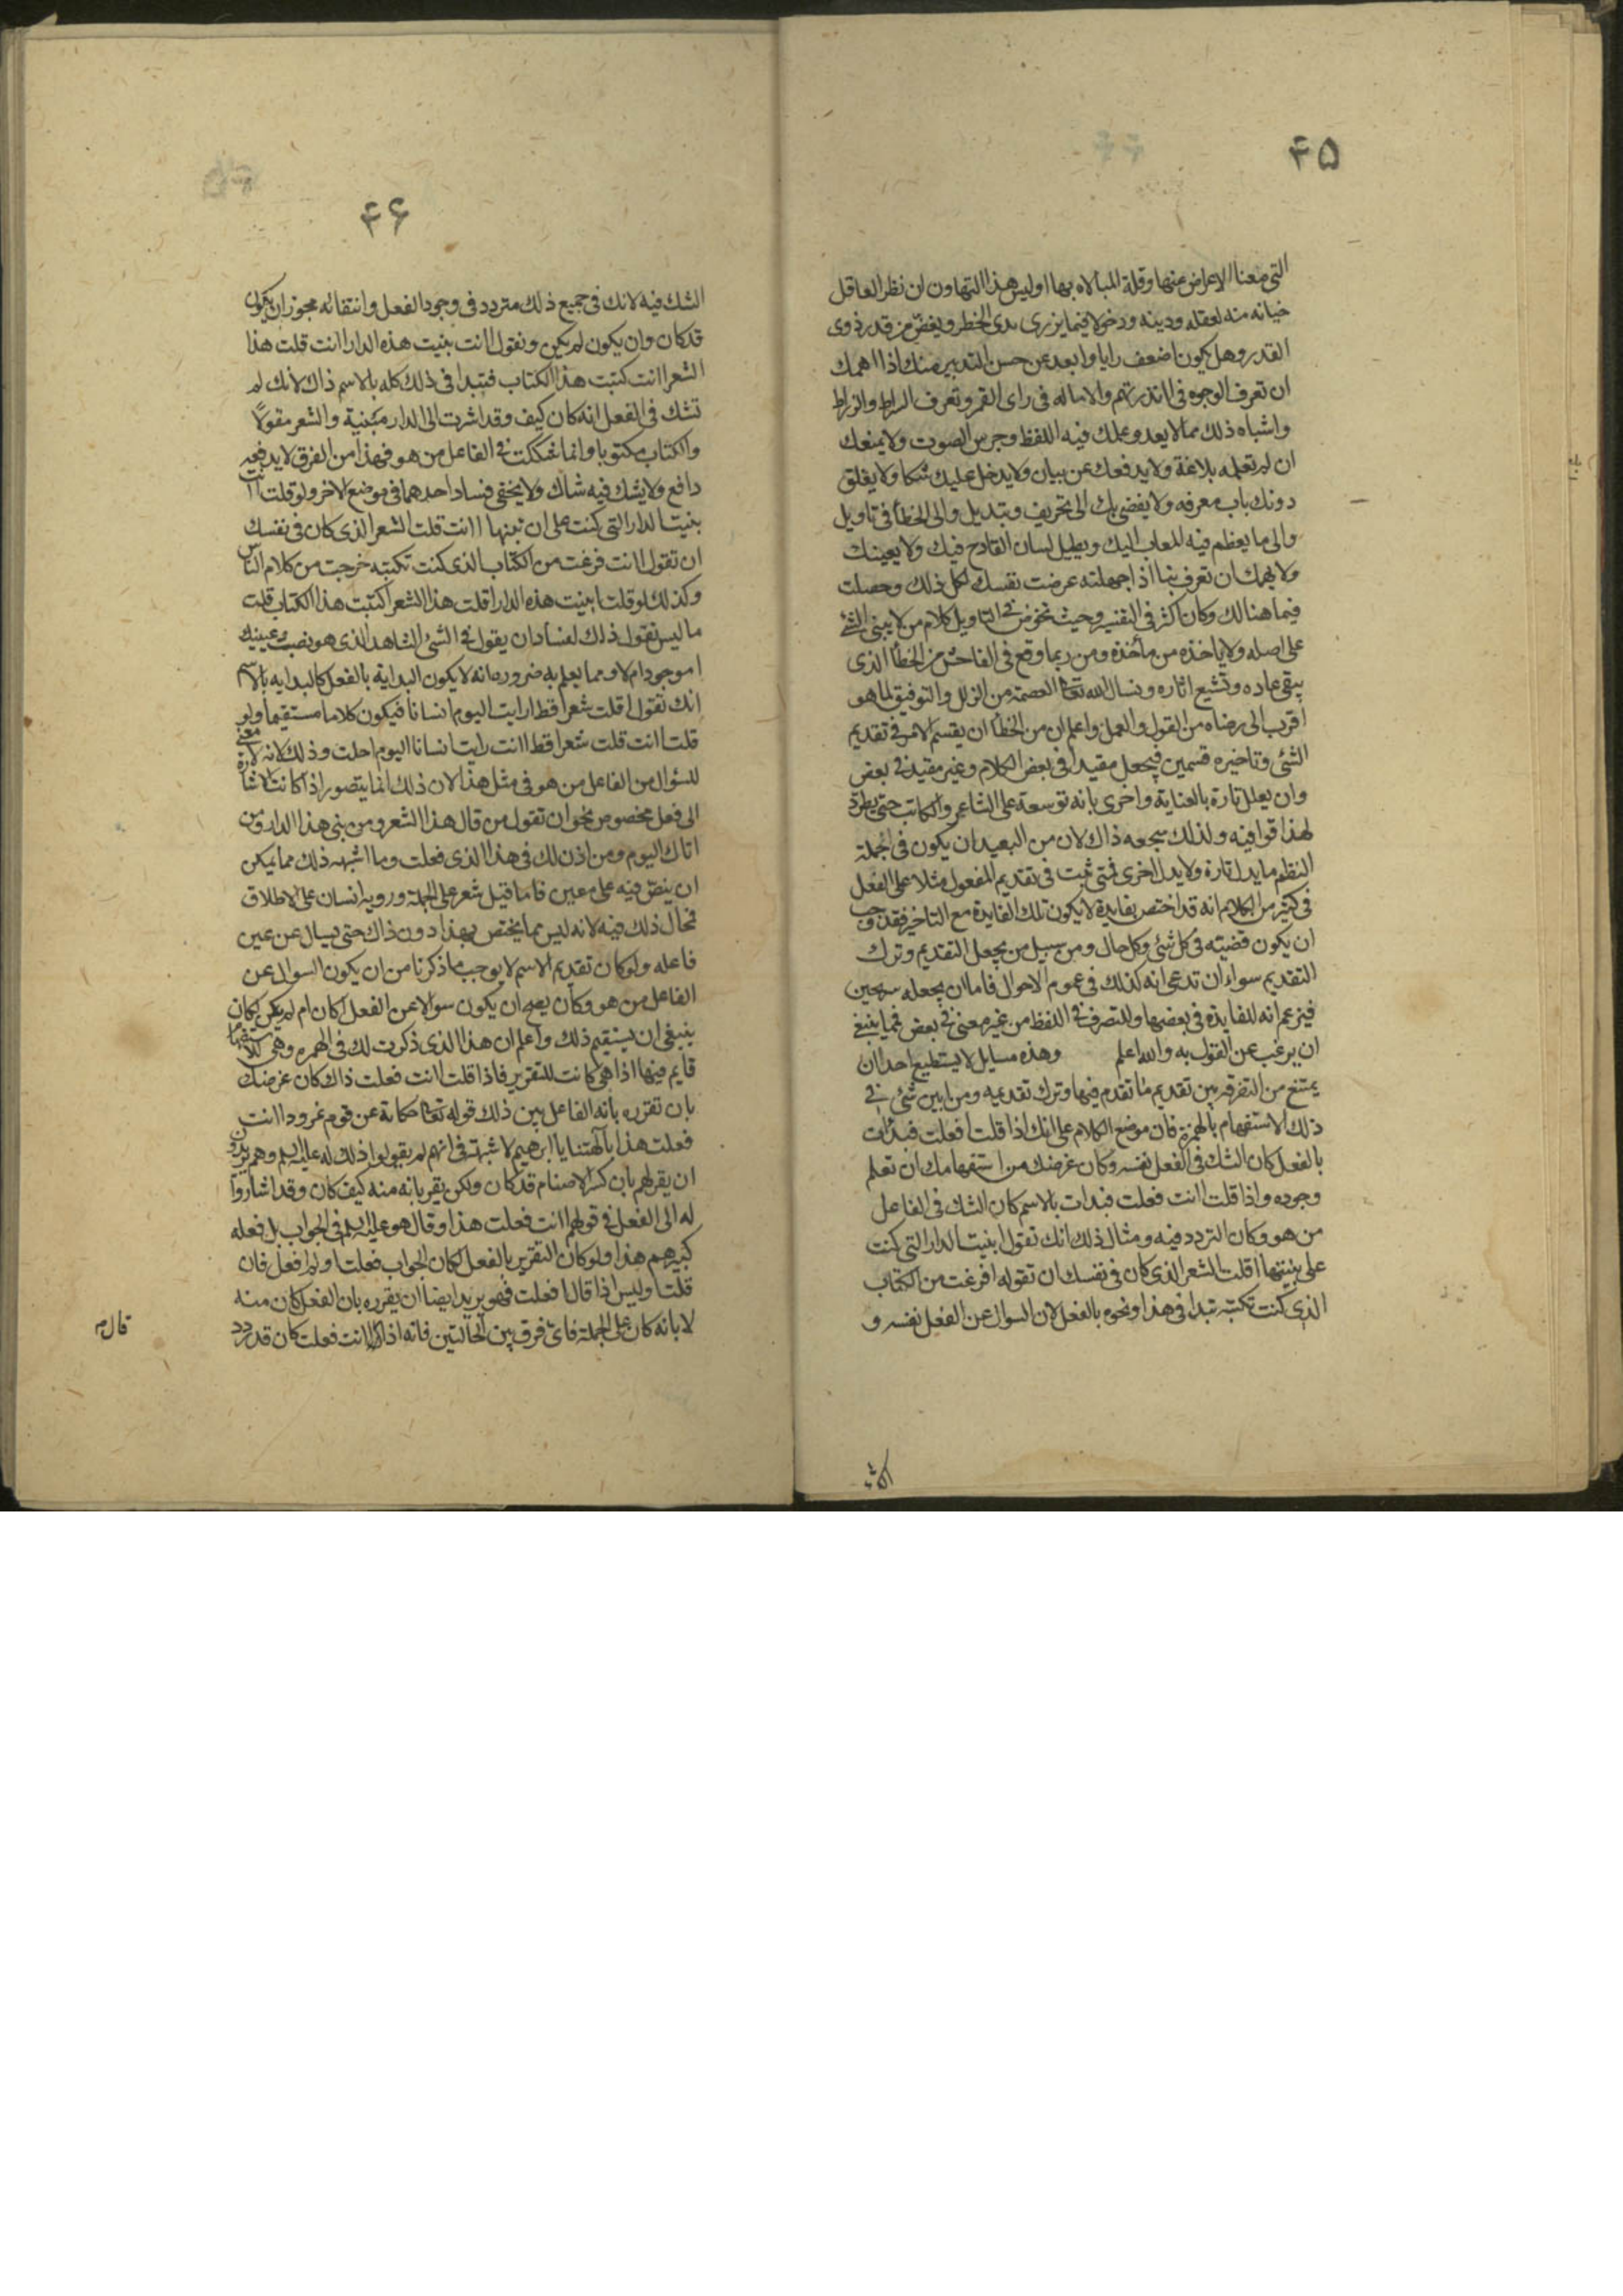 ۴۵
التی معنا الاعراض عنها وقلة المبالاه بها اولیس هذا التهاون ان نظر العاقل
خیانه منه لعقله ودینه ودخولا فیما یزری بذی الخطر ویغض من قدر ذوی
القدر وهل یکون اضعف رایا وابعد عن حسن التدبیر منك اذا اهمك
ان تعرف الوجوه فی اانذرتهم والاماله فی رای القمر وتعرف الصراط والزراط
واشباه ذلك مما لا یعدو علمك فیه اللفظ وجرس الصوت ولا یمنعك
ان لم تعلمه بلاغة ولا یدفعك عن بیان ولا یدخل علیك شکا ولا یغلق
دونك باب معرفه ولا یفضی بك الی تحریف وتبدیل والی الخطأ فی تاویل
والی ما یعظم فیه المعاب الیك ویطیل لسان القادح فیك ولا یعینك
ولا یهمك ان تعرف بما اذا جهلته عرضت نفسك لکل ذلك وحصلت
فیما هنالك وکان اکثر فی التفسیر وحیث تخوض فی التاویل کلام من لا یبنی الشئ
علی اصله ولا یاخذه من مأخذه ومن ربما وقع فی الفاحش من الخطأ الذی
یبقی عاره وتشیع اثاره ونسال الله تعالی العصمة من الزلل والتوفیق لما هو
اقرب الی رضاه من القول والعمل واعلم ان من الخطأ ان یقسم الامر فی تقدیم
الشئ وتاخیره قسمین فیجعل مفیدا فی بعض الکلام وغیر مفید فی بعض
وان یعلل تارة بالعنایة واخری بانه توسعة علی الشاعر والکاتب حتی یطرد
لهذا قوافیه ولذلك سجعه ذاك لان من البعید ان یکون فی الجملة
النظم ما یدل تارة ولا یدل اخری فمتی ثبت فی تقدیم المفعول مثلا علی الفعل
فی کثیر من الکلام انه قد اختص بفایدة لا یکون تلك الفایدة مع التاخیر فقد وجب
ان یکون قضیته فی کل شئ وکل حال ومن سبیل من یجعل التقدیم وترك
التقدیم سواء ان تدعی انه کذلك فی عموم الاحوال فاما ان یجعله سریحین
فیزعم انه للفایدة فی بعضها وللتصرف فی اللفظ من غیر معنی فی بعض فمما ینبغی
ان یرغب عن القول به والله اعلم وهذه مسایل لا یستطیع احد ان
یمتنع من التفرقة بین تقدیم ما تقدم فیها وترك تقدیمه ومن ابین شئ فی
ذلك الاستفهام بالهمزة فان موضع الکلام علی انك اذا قلت افعلت فبدأت
بالفعل کان الشك فی الفعل نفسه وکان غرضك من استفهامك ان تعلم
وجوده واذا قلت اانت فعلت فبدات بالاسم کان الشك فی الفاعل
من هو وکان التردد فیه ومثال ذلك انك تقول ابنیت الدار التی کنت
علی بنیتها اقلت الشعر الذی کان فی نفسك ان تقوله افرغت من الکتاب
الذی کنت تکتبه تبدا فی هذا ونحوه بالفعل لان السوال عن الفعل نفسه و
۴۶
الشك فیه لانك فی جمیع ذلك متردد فی وجود الفعل وانتفائه مجوز ان یکون
قد کان وان یکون لم یکن وتقول اانت بنیت هذه الدار اانت قلت هذا
الشعر اانت کتبت هذا الکتاب فتبدا فی ذلك کله بالاسم ذاك لانك لم
تشك فی الفعل انه کان کیف وقد اشرت الی الدار مبنیة والشعر مقولا
والکتاب مکتوبا وانما شککت فی الفاعل من هو فهذا من الفرق لا یدفعه
دافع ولا یشك فیه شاك ولا یخفی فساد احدهما فی موضع الاخر ولو قلت اانت
بنیت الدار التی کنت علی ان تبنها اانت قلت الشعر الذی کان فی نفسك
ان تقول اانت فرغت من الکتاب الذی کنت تکتبه خرجت من کلام الناس
وکذلك لو قلت ابنیت هذه الدار اقلت هذا الشعر اکتبت هذا الکتاب قلت
ما لیس نقول ذلك لفساد ان یقول فی الشئ الشاهد الذی هو نصب عینیك
اموجود ام لا ومما یعلم به ضرورة انه لا یکون البدایة بالفعل کالبدایه بالاسم
انك تقول اقلت شعرا قط ارایت الیوم انسانا فیکون کلاما مستقیما ولو
قلت اانت قلت شعرا قط اانت رایت انسانا الیوم احلت وذلك لانه لا معنی
للسؤال من الفاعل من هو فی مثل هذا لان ذلك انما یتصور اذا کانت اشارة
الی فعل مخصوص نحو ان تقول من قال هذا الشعر ومن بنی هذا الدار ومن
اتاك الیوم ومن اذن لك فی هذا الذی فعلت وما اشبهه ذلك مما یمکن
ان ینص فیه علی معین فاما قیل شعر علی الجملة ورویة انسان علی الاطلاق
فمحال ذلك فیه لانه لیس مما یختص بهذا دون ذاك حتی یسال عن عین
فاعله ولو کان تقدیم الاسم لا یوجب ما ذکرنا من ان یکون السوال عن
الفاعل من هو وکان یصح ان یکون سوالا عن الفعل اکان ام لم یکن لکان
ینبغی ان یستقیم ذلك واعلم ان هذا الذی ذکرت لك فی الهمزه وهی للاستفهام
قایم فیها اذا هی کانت للتقریر فاذا قلت اانت فعلت ذاك کان غرضك
بان تقرره بانه الفاعل یبین ذلك قوله تعالی حکایة عن قوم نمرود اانت
فعلت هذا بآلهتنا یا ابرهیم لا شبهة فی انهم لم یقولوا ذلك له علیه السلم وهم یریدون
ان یقر لهم بان کسر الاصنام قد کان ولکن یقر بانه منه کیف کان وقد اشاروا
له الی الفعل فی قولهم اانت فعلت هذا وقال هو علیه السلم فی الجواب بل فعله
کبیرهم هذا ولو کان التقریر بالفعل لکان الجواب فعلت او لم افعل فان
قلت اولیس اذا قال افعلت فهو یرید ایضا ان یقرره بان الفعل کان منه
لا بانه کان علی الجملة فای فرق بین الحالتین فانه اذا قال اانت فعلت کان قد ردد